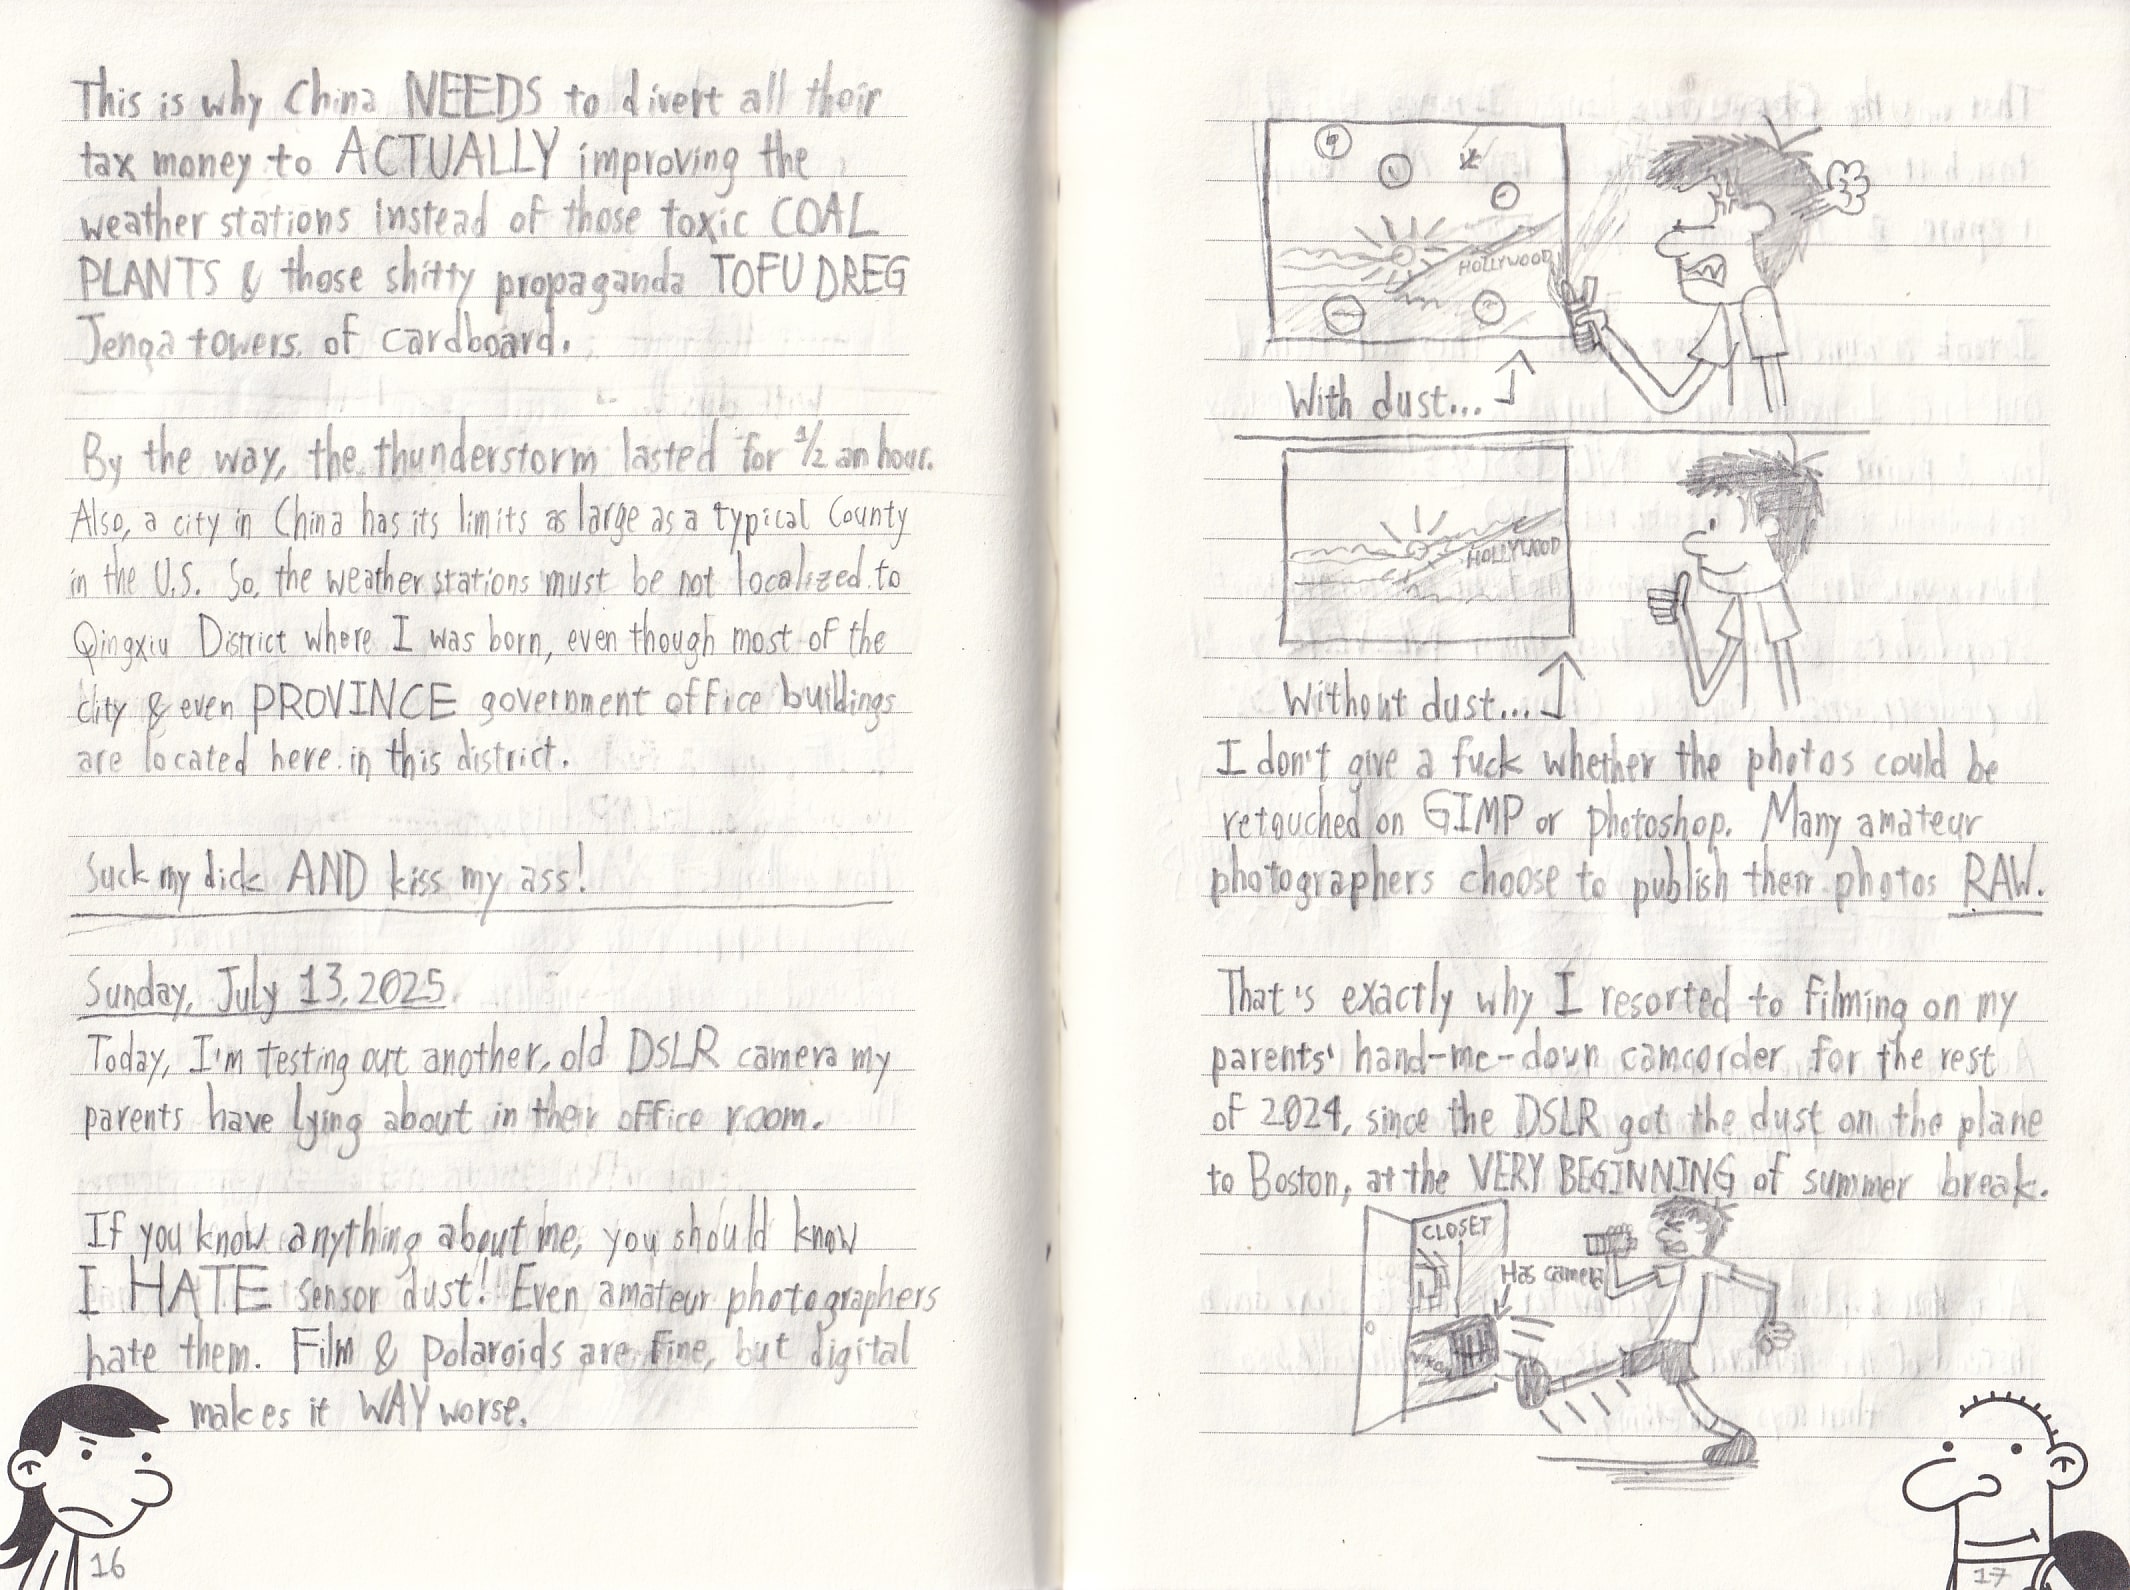 This is why China NEEDS to divert all their
tax money to ACTUALLY improving the
weather stations instead of those toxic COAL
PLANTS & those shitty propaganda TOFU DREG
Jenga towers of cardboard.
By the way, the thunderstorm lasted for 1/2 an hour.
Also, a city in China has its limits as large as a typical County
in the U.S. So, the weather stations must be not localized to
Qingxiu District where I was born, even though most of the
city & even PROVINCE government office buildings
are located here in this district.
Suck my dick AND kiss my ass!
Sunday, July 13, 2025
Today, I'm testing out another, old DSLR camera my
parents have lying about in their office room.
If you know anything about me, you should know
I HATE sensor dust! Even amateur photographers
hate them. Film & Polaroids are fine, but digital
makes it WAY worse.
16
HOLLYWOOD
With dust...
HOLLYWOOD
Without dust...
I don't give a fuck whether the photos could be
retouched on GIMP or Photoshop. Many amateur
photographers choose to publish their photos RAW.
That's exactly why I resorted to filming on my
parents' hand-me-down camcorder for the rest
of 2024, since the DSLR got the dust on the plane
to Boston, at the VERY BEGINNING of summer break.
CLOSET
Has camera
NIKON
17